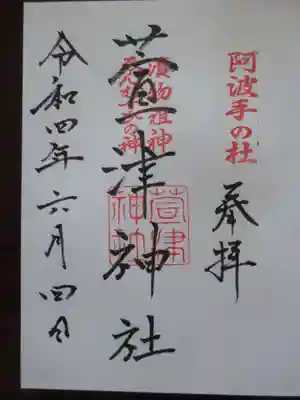 阿波手の杜
奉拝
漬物祖神
萱津神社
萱津神社
令和四年六月四日